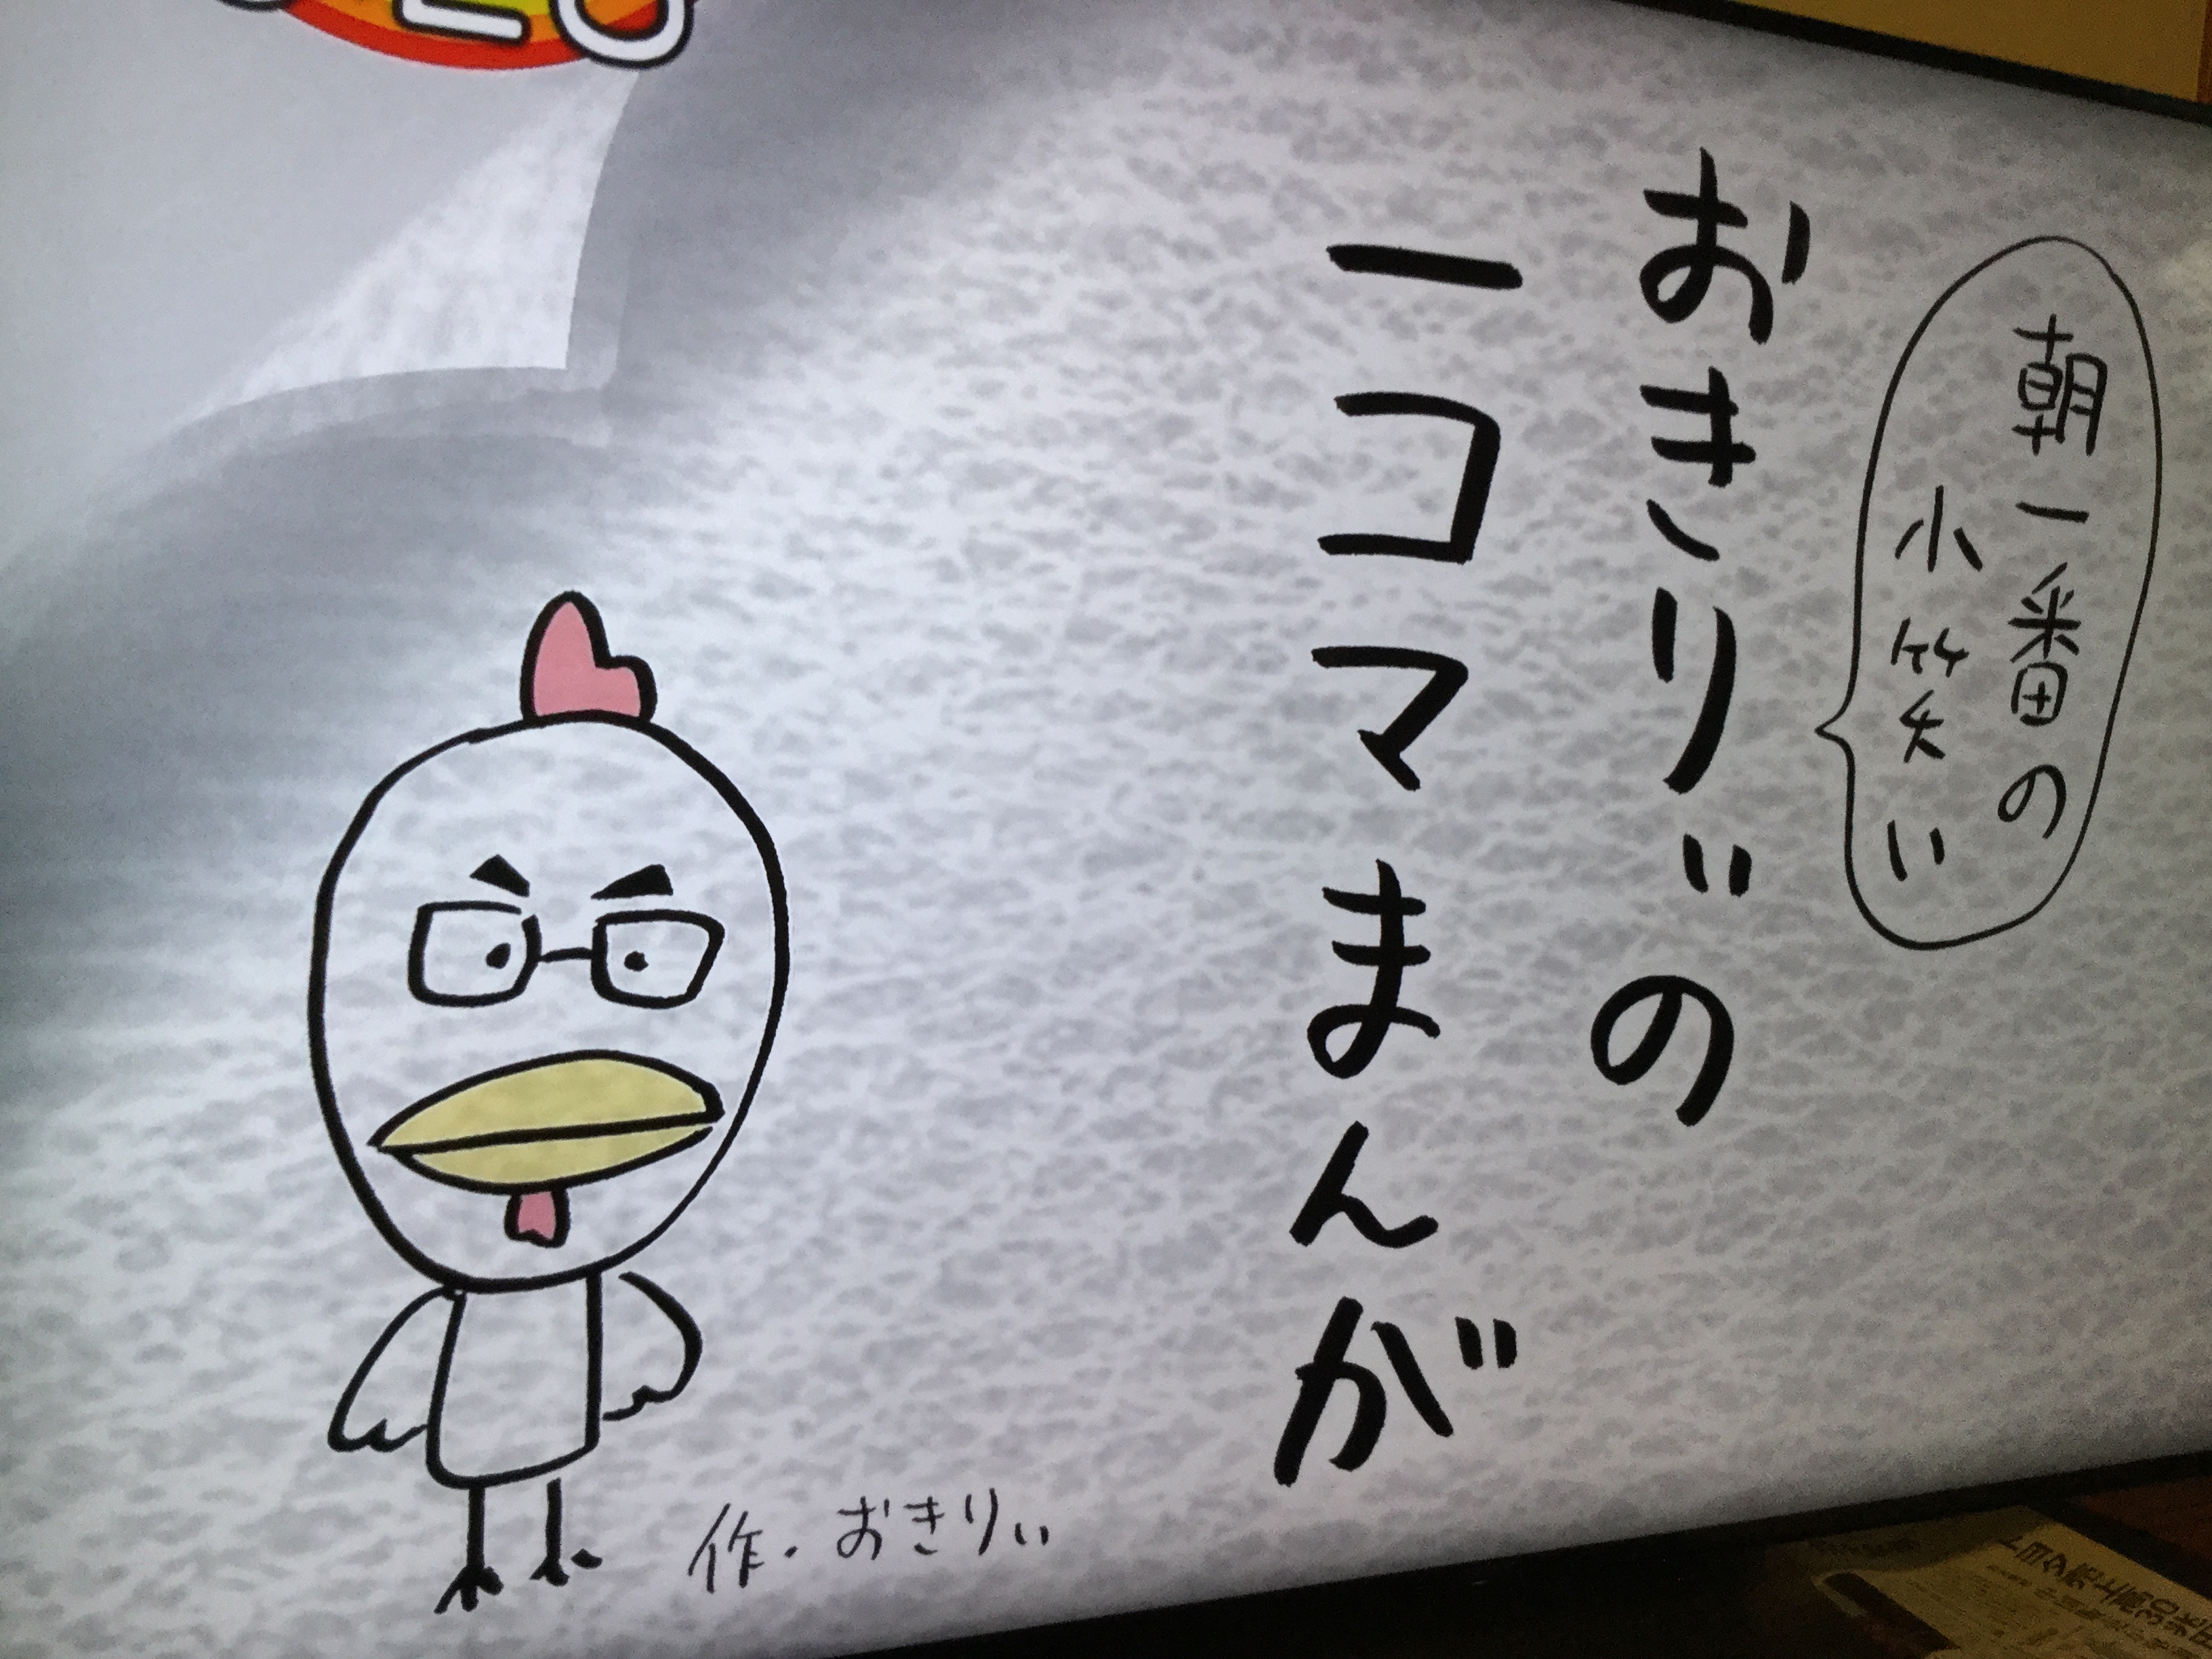 朝一番の
小笑い
おきりぃの
一コマまんが
作・おきりぃ